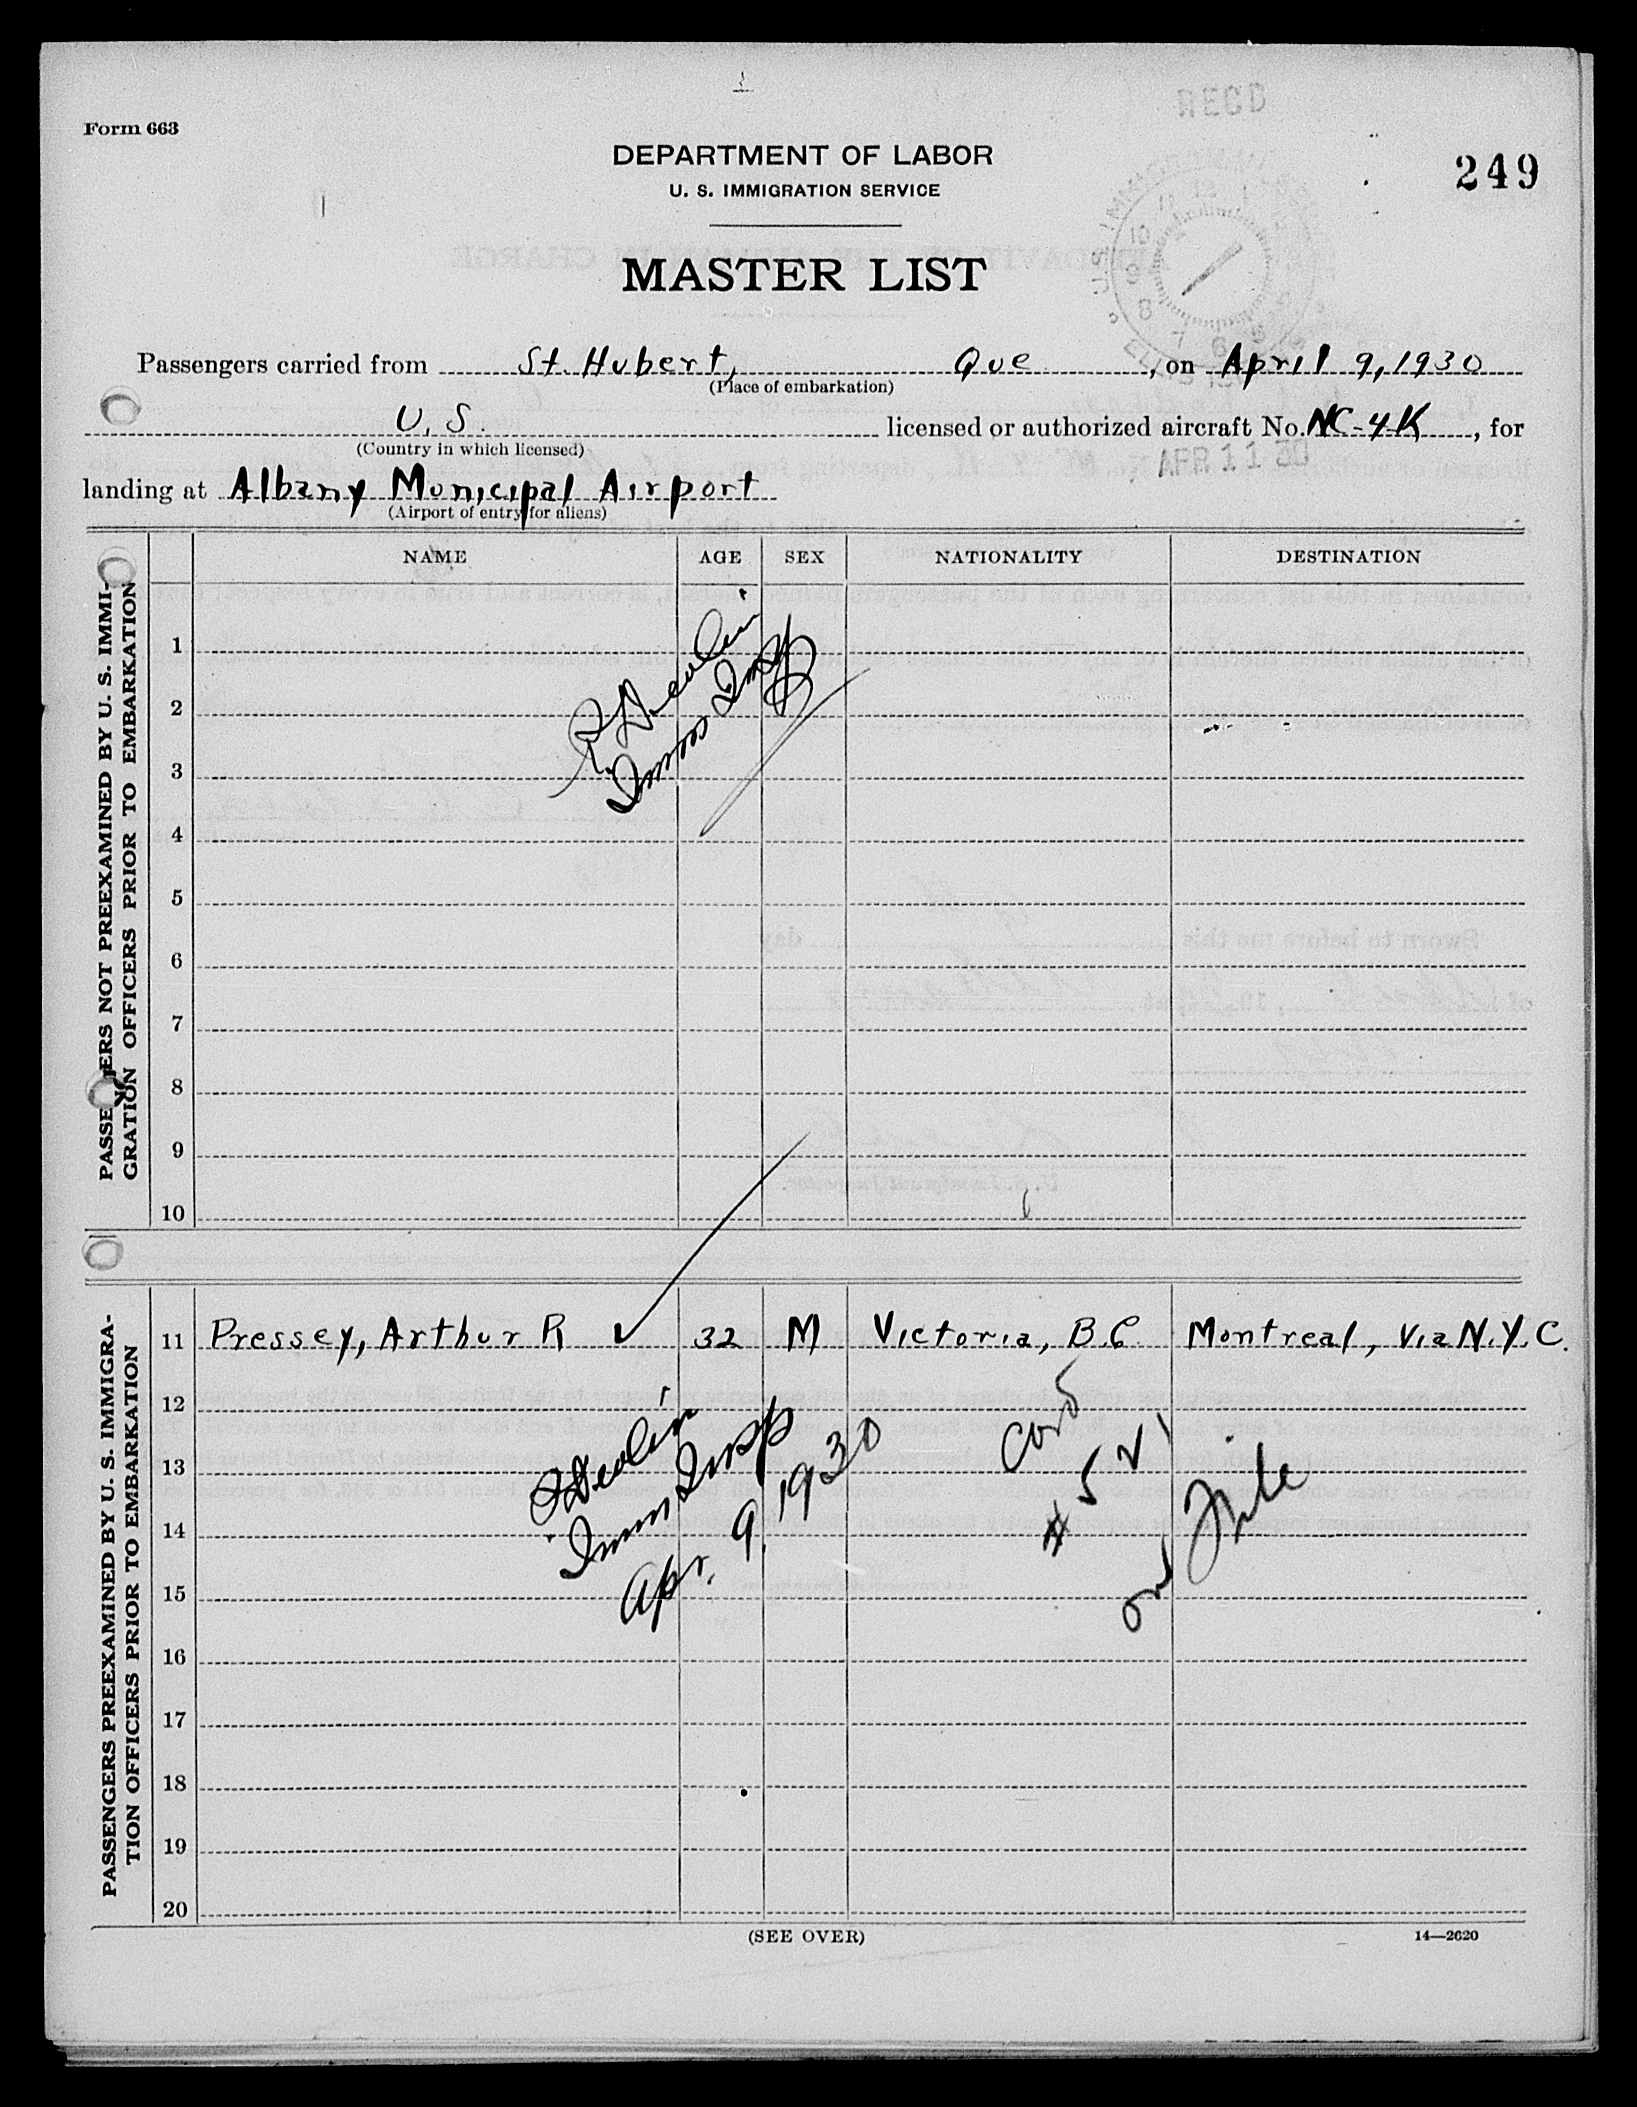 RECD
Form 663
DEPARTMENT OF LABOR
249
U. S. IMMIGRATION SERVICE
MASTER LIST
Passengers carried from St. Hubert, Que, on April 9, 1930
(Place of embarkation)
U.S. licensed or authorized aircraft No. NC-4K, for
(Country in which licensed)
APR 11 30
landing at Albany Municipal Airport
(Airport of entry for aliens)
NAME AGE SEX NATIONALITY DESTINATION
PASSENGERS NOT PREEXAMINED BY U. S. IMMI-
GRATION OFFICERS PRIOR TO EMBARKATION
1
2
3
4
5
6
7
8
9
10
Devlin
Imm Insp
PASSENGERS PREEXAMINED BY U. S. IMMIGRA-
TION OFFICERS PRIOR TO EMBARKATION
11 Pressey, Arthur R 32 M Victoria, B.C. Montreal, Via N.Y.C.
12
13
14
15
16
17
18
19
20
Devlin
Imm Insp
Apr. 9. 1930
Card
# 521
on File
(SEE OVER)
14—2620